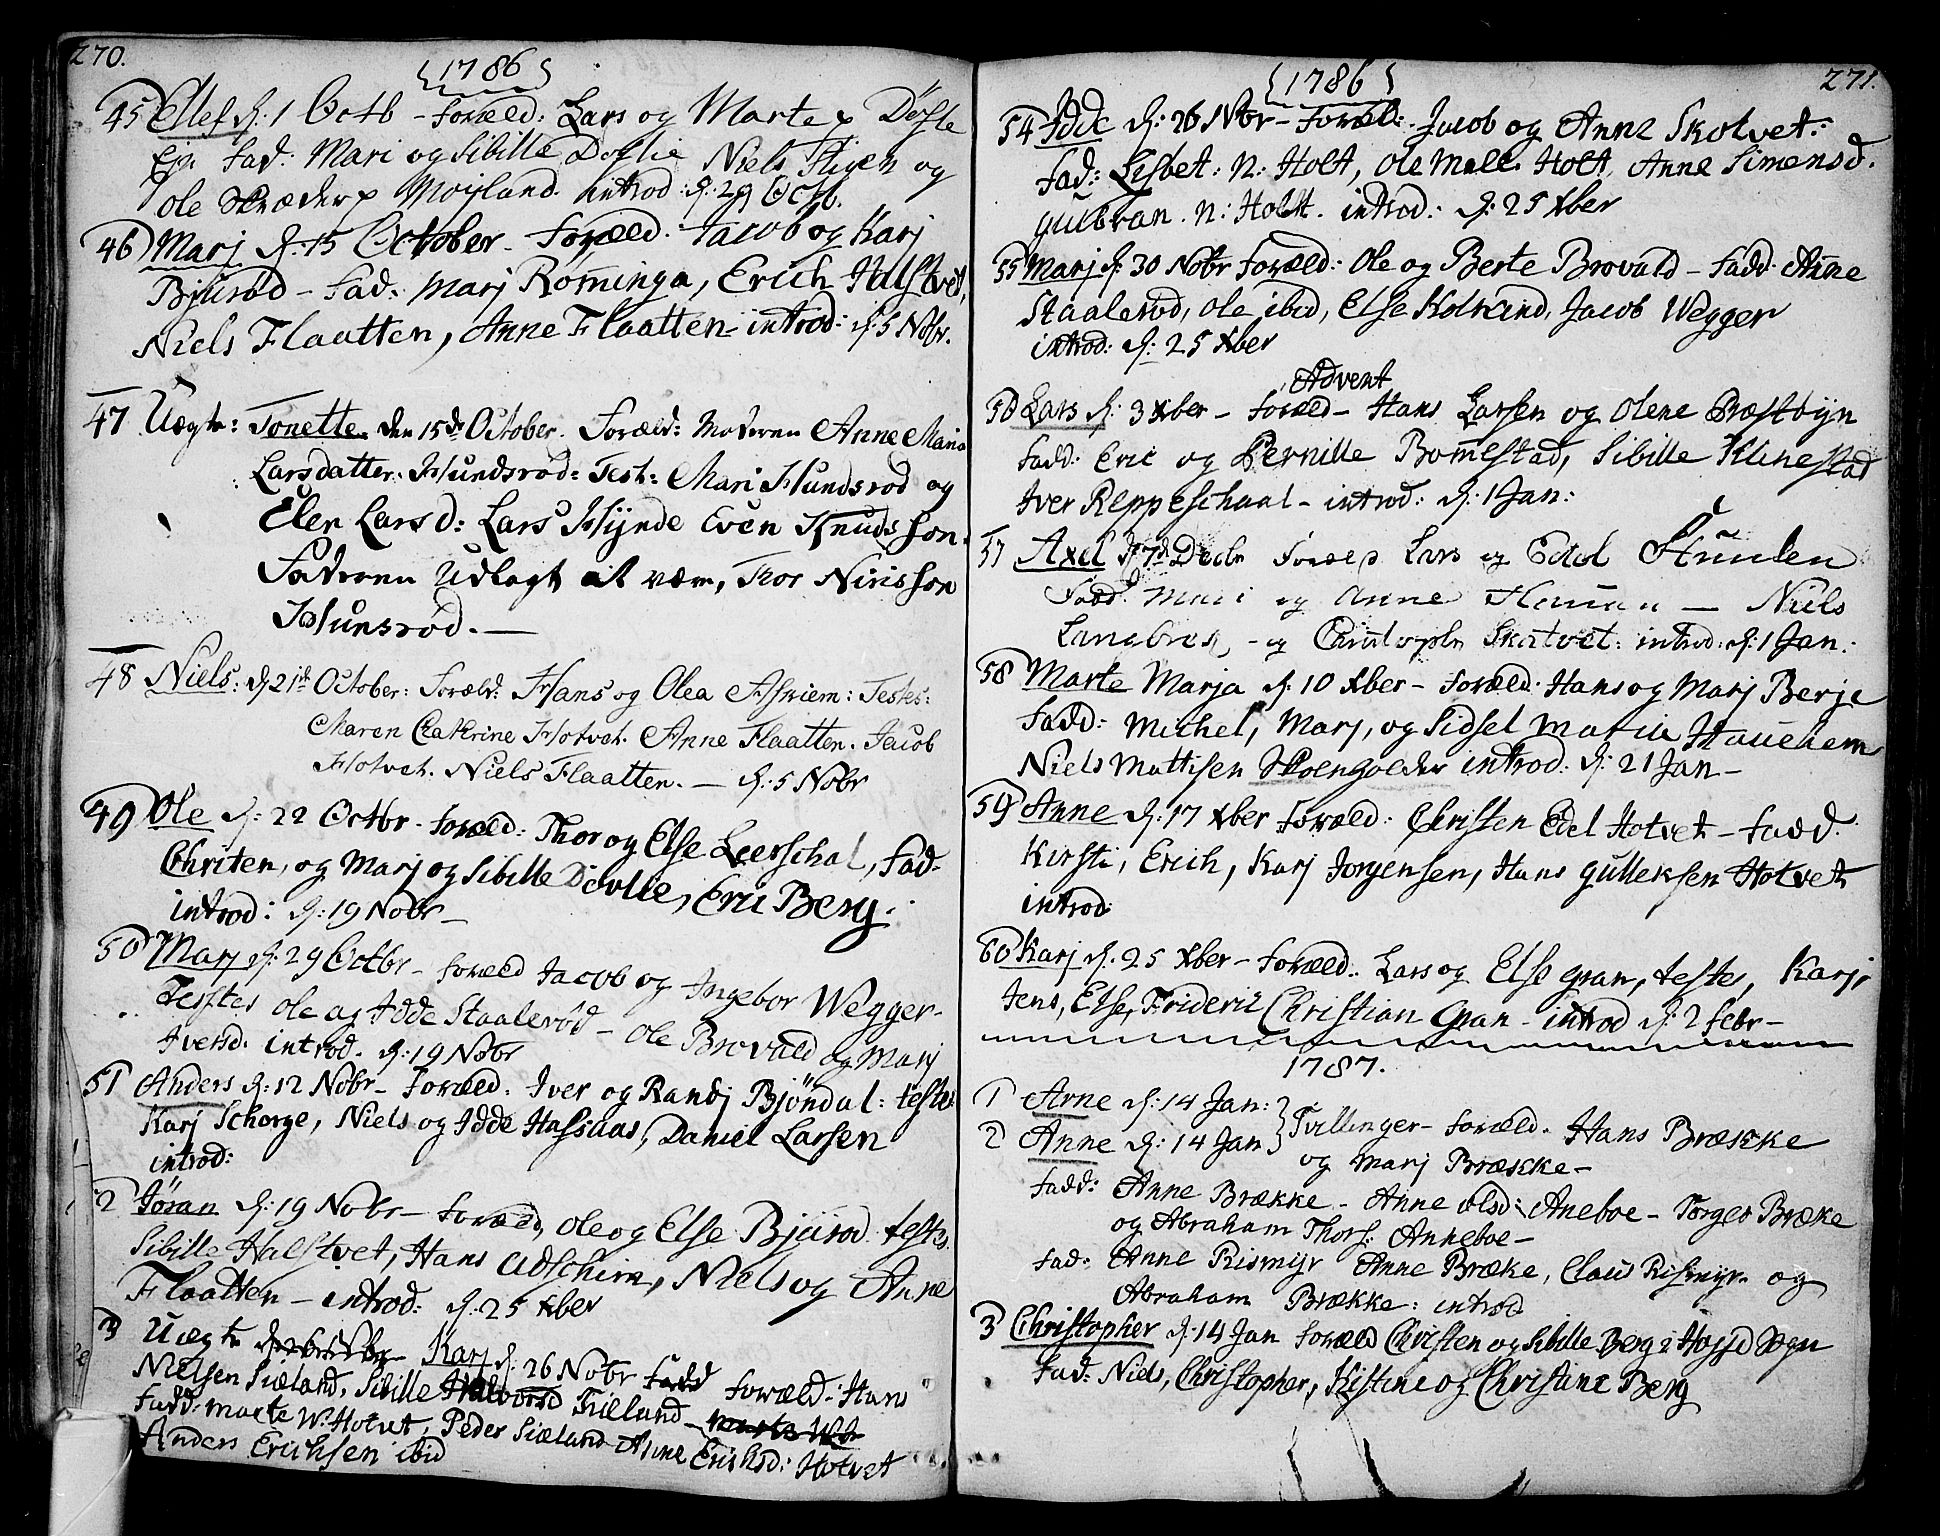 270.
{1786}
45 Ellef d: 1 Octb - foræld: Lars og Marte Døfle
Fad: Mari og Sibille Dofle Niels Stigen og
Ole Skræder Moyland. introd: d: 29 Octb.
46 Marj d: 15 October - foræld. Jacob og Karj
Bjurød - fad. Marj Rominga, Erich Halstvet,
Niels Flaatten, Anne Flaatten introd: d: 5 Nobr.
47 Uægte: Tonette den 15de October. Foræld: Moderen Anne Maria
Larsdatter Hundsrød: Test: Mari Hundsrød og
Elen Larsd: Lars Hynde Even Knudsson.
Faderen Udlagt at være, Thor Nirisson
Hunsrød. —
48 Niels: d 21de October: Foræld: Hans og Olea Askiem: Testes:
Maren Cathrine Hotvet. Anne Flaatten. Jacob
Hotvet. Niels Flaatten. — d: 5 Nobr
49 Ole d: 22 Octbr - foræld: Thor og Else Leerschal, fad.
Chriten, og Marj og Sibille Dovlie, Eric Berg.
introd: d: 19 Nobr —
50 Marj d: 29 Octbr - foræld Jacob og Ingebor Wegger -
Testes Ole og Idde Staalerød - Ole Brovald og Marj
Iversd. introd. d: 19 Nobr
51 Anders d: 12 Nobr - foræld. Iver og Randj Bjøndal: testes
Karj Schorge, Niels og Idde Hassaas, Daniel Larsen
introd:
2 Jøran d: 19 Nobr - foræld, Ole og Else Bjurød testes
Sibille Halstvet, Hans Adschim, Niels og Anne
Flaatten - introd: d: 25 Xber
3 Uægte Karj d: 26 Nobr Fadd foræld: Hans
Nielsen Siæland, Sibille Halvorsd Fiæland -
Fadd: Marte W. Hotvet, Peder Siæland Anne Erichsd: Hotvet
Anders Erichsen ibid
{1786}
271.
54 Idde d: 26 Nobr - foræld: Jacob og Anne Skotvet:
fad: Lisbet: N: Holt, Ole Melle Holt, Anne Simensd.
Gulbran. N: Holt. introd: d: 25 Xber
55 Marj d: 30 Nobr foræld: Ole og Berte Brovald - fadd Anne
Staalerød, Ole ibid, Else Kolkind, Jacob Wegger
introd: d: 25 Xber
Advent
56 Lars d: 3 Xber - foræld - Hans Larsen og Olene Præstbyn
fadd: Eric og Pernille Bommestad, Sibille Klinestad
Iver Reppeschaal - introd: d: 1 Jan:
57 Axel d 7d Decbr Foræld Lars og Edel Stuulen
Fadd: Mari og Anne Hauan — Niels
Langbres, - og Christopher Skotvet: introd: d: 1 Jan.
58 Marte Marja d: 10 Xber - foræld: Hans og Marj Berje
fadd: Michel, Marj, og Sidsel Maria Hauehem
Niels Mattisen Skoengolder introd: d: 21 Jan -
59 Anne d: 17 Xber foræld: Christen Edel Hotvet - fadd.
Kirsti, Erich, Karj Jorgensen, Hans Gulleksen Hotvet
introd:
60 Karj d. 25 Xber - foræld: Lars og Else Gran, testes, Karj,
Jens, Else, Frideric Christian Gran - introd d: 2 febr -
1787.
1 Arne d: 14 Jan: } Tvillinger - foræld. Hans Bræcke
2 Anne d: 14 Jan } og Marj Bræcke -
fadd: Anne Brække - Anne Olsd: Aneboe - Torger Bræke
og Abraham Thors: Anneboe -
fad: Anne Rismyr Anne Bræke, Claus Rismyr og
Abraham Brække: introd
3 Christopher d: 14 Jan foræld Christen og Sibille Berg i Hogjd Sogn
fad: Niels, Christopher, Kistine og Christine Berg